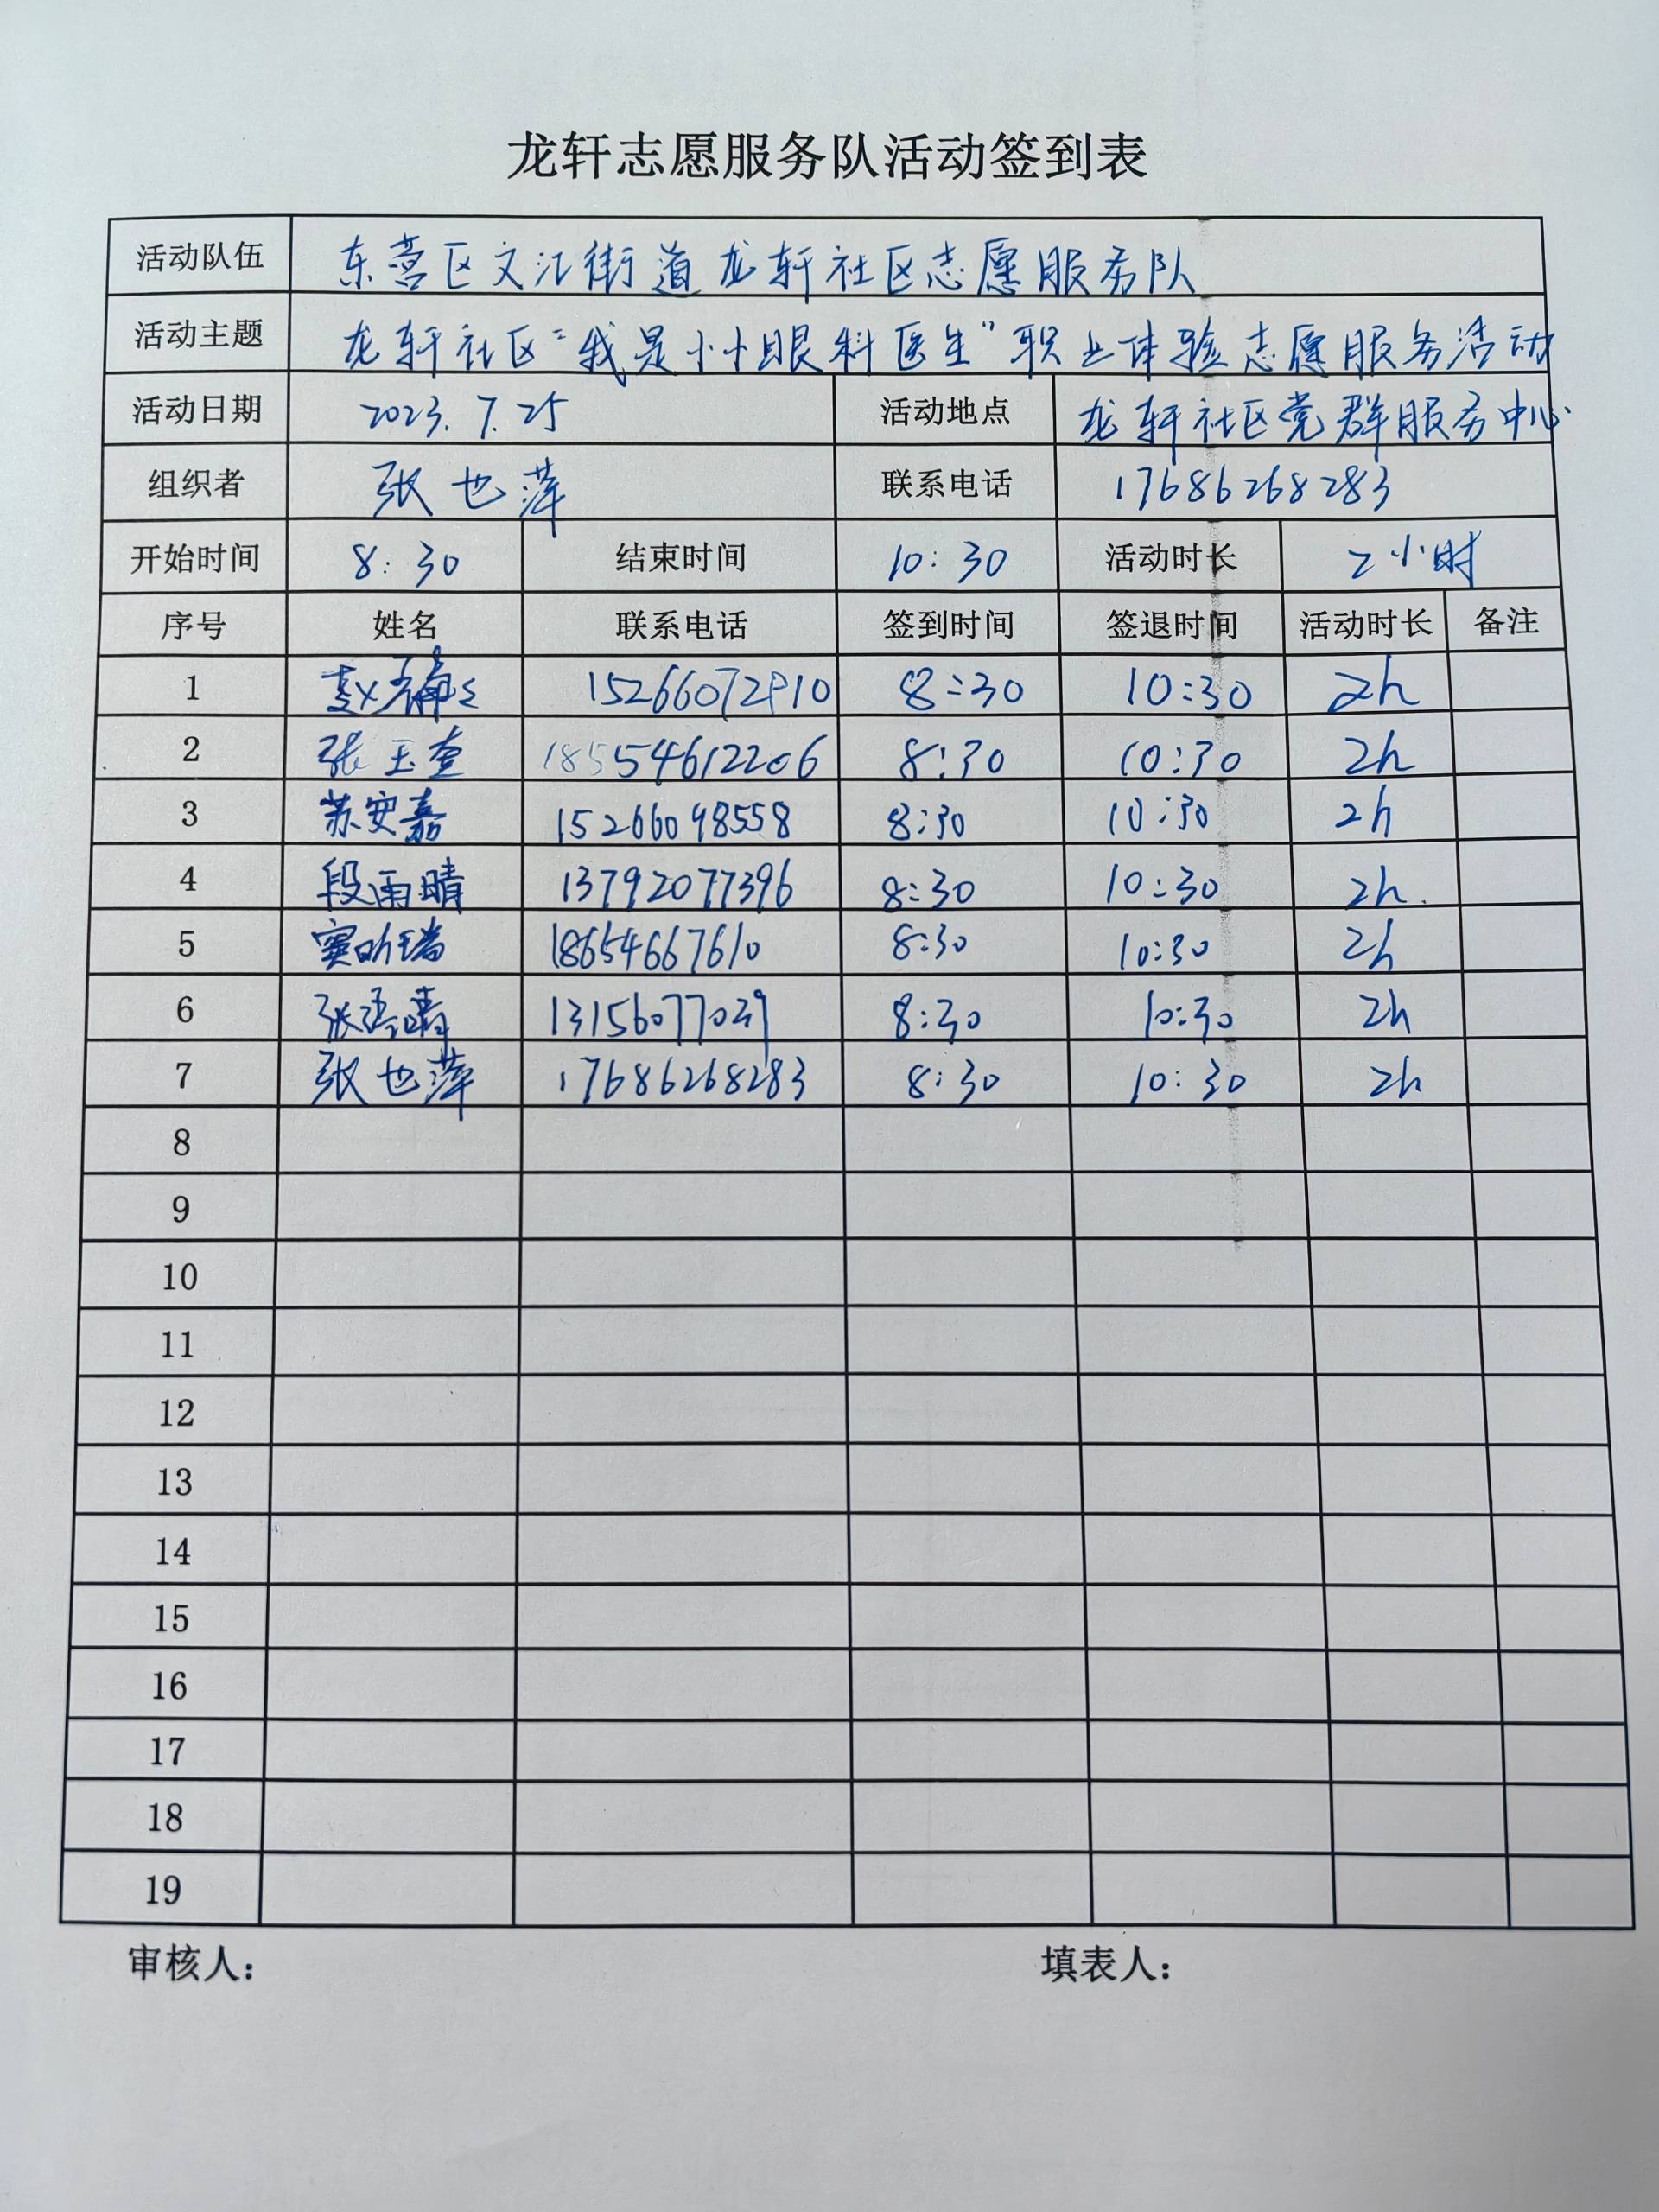 龙轩志愿服务队活动签到表
活动队伍 东营区文汇街道龙轩社区志愿服务队
活动主题 龙轩社区“我是小小眼科医生”职业体验志愿服务活动
活动日期 2023.7.25 活动地点 龙轩社区党群服务中心
组织者 张也萍 联系电话 17686268283
开始时间 8:30 结束时间 10:30 活动时长 2小时
序号 姓名 联系电话 签到时间 签退时间 活动时长 备注
1 8:30 10:30 2h
2 张玉奎 18554612206 8:30 10:30 2h
3 苏安嘉 15266098558 8:30 10:30 2h
4 段雨晴 13792077396 8:30 10:30 2h.
5 窦昕瑞 18654667610 8:30 10:30 2h
6 8:30 10:30 2h
7 张也萍 17686268283 8:30 10:30 2h
8
9
10
11
12
13
14
15
16
17
18
19
审核人： 填表人：